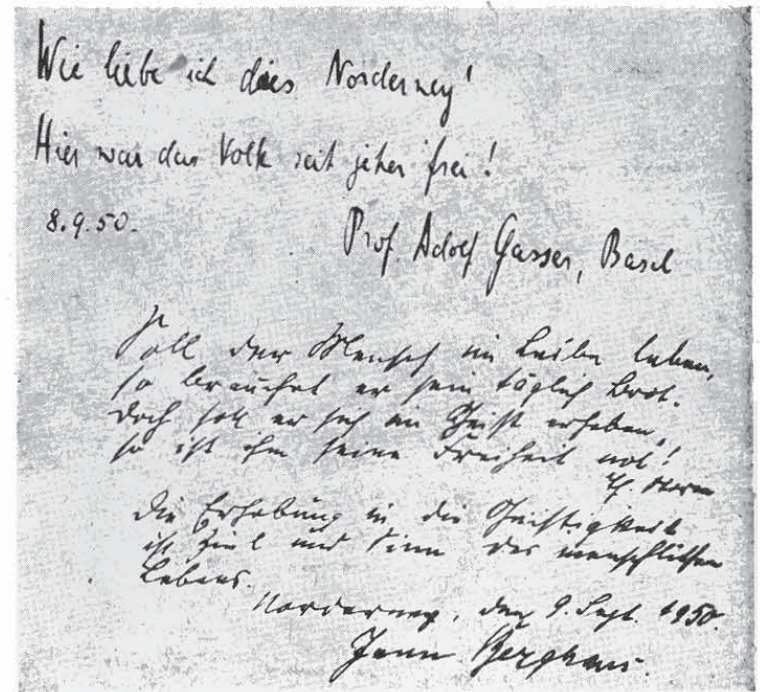 Wie liebe ich dies Norderney!
Hier war das Volk seit jeher frei!
8.9.50.
Prof. Adolf Gasser, Basel
Soll der Mensch im Leibe leben,
so brauchet er sein täglich Brot.
Doch soll er sich im Geist erheben,
so ist ihm seine Freiheit not!
Th. Storm
Die Erhebung in die Geistigkeit
ist Ziel und Sinn des menschlichen
Lebens.
Norderney, den 9. Sept. 1950.
Jann Berghaus.